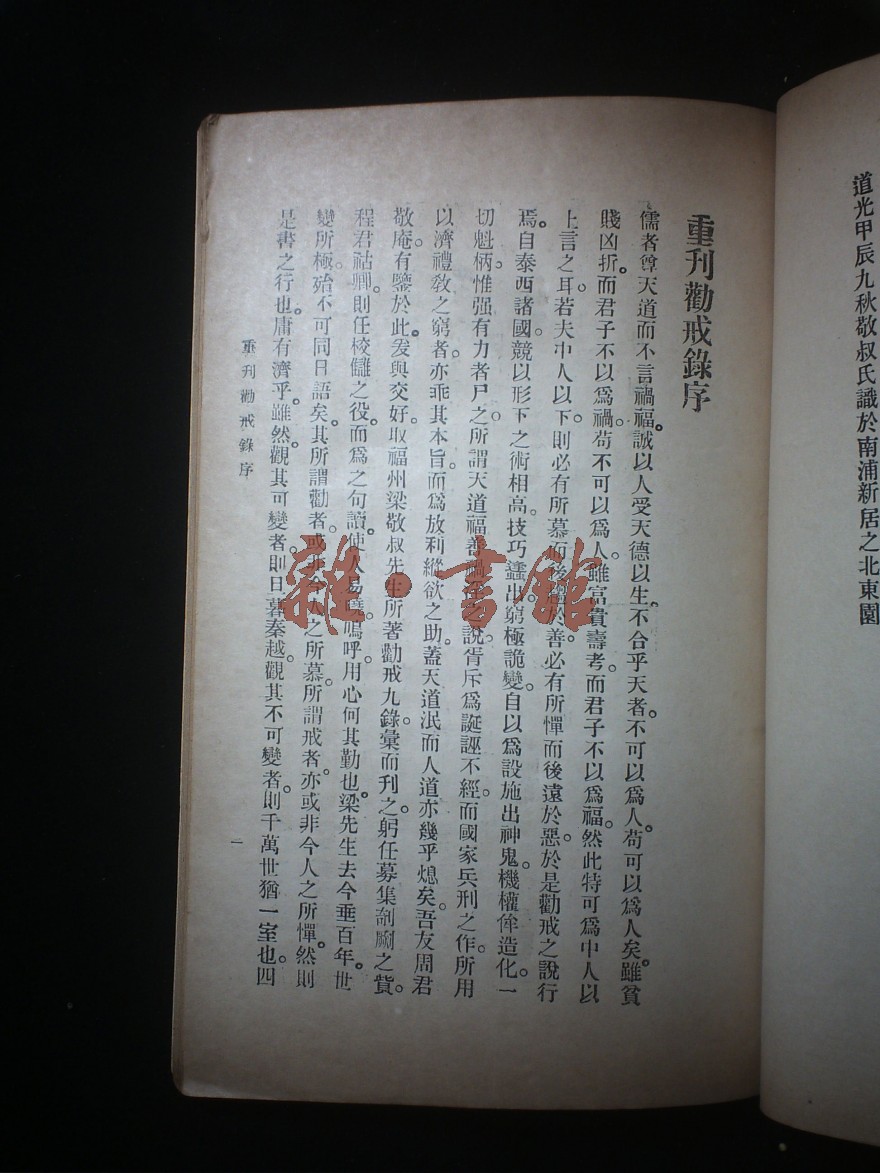 道光甲辰九秋敬叔氏識於南浦新居之北東園
重刊勸戒錄序
儒者尊天道而不言禍福。誠以人受天德以生。不合乎天者。不可以為人。苟可以為人矣。雖貧
賤凶折。而君子不以為禍。苟不可以為人。雖富貴壽考。而君子不以為福。然此特可為中人以
上言之耳。若夫中人以下。則必有所慕而後於善。必有所憚而後遠於惡。於是勸戒之說行
焉。自泰西諸國競以形下之術相高。技巧蠭出。窮極詭變。自以為設施出神鬼。機權侔造化。一
切魁柄惟强有力者尸之。所謂天道福善禍之說。胥斥為誕誣不經。而國家兵刑之作。所用
以濟禮敎之窮者。亦乖其本旨。而為放利縱欲之助。蓋天道泯而人道亦幾乎熄矣。吾友周君
敬庵。有鑒於此。爰與交好。取福州梁敬叔先生所著勸戒九錄。彙而刊之。躬任募集剞劂之貲。
程君祜卿。則任校讎之役。而為之句讀。使人易曉。嗚呼。用心何其勤也。梁先生去今垂百年。世
變所極。殆不可同日語矣。其所謂勸者。或非今人之所慕。所謂戒者。亦或非今人之所憚。然則
是書之行也。庸有濟乎。雖然。觀其可變者。則日暮秦越。觀其不可變者。則千萬世猶一室也。四
重刊勸戒錄序
一
雜·書館